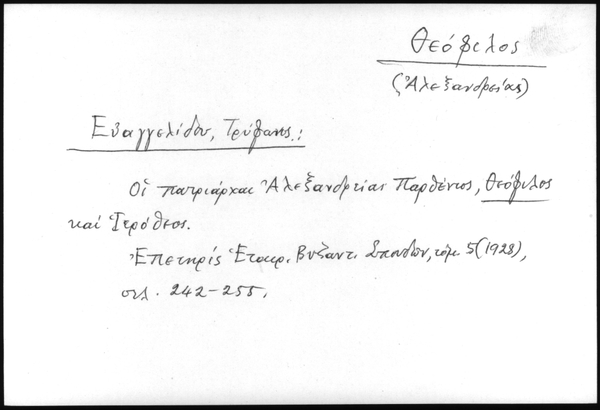 Θεόφιλος
(Ἀλεξανδρείας)
Εὐαγγελίδου, Τρύφωνος:
Οἱ πατριάρχαι Ἀλεξανδρείας Παρθένιος, Θεόφιλος
καὶ Ἱερόθεος.
Ἐπετηρὶς Ἑταιρ. Βυζαντ. Σπουδῶν, τόμ. 5 (1928),
σελ. 242-255.